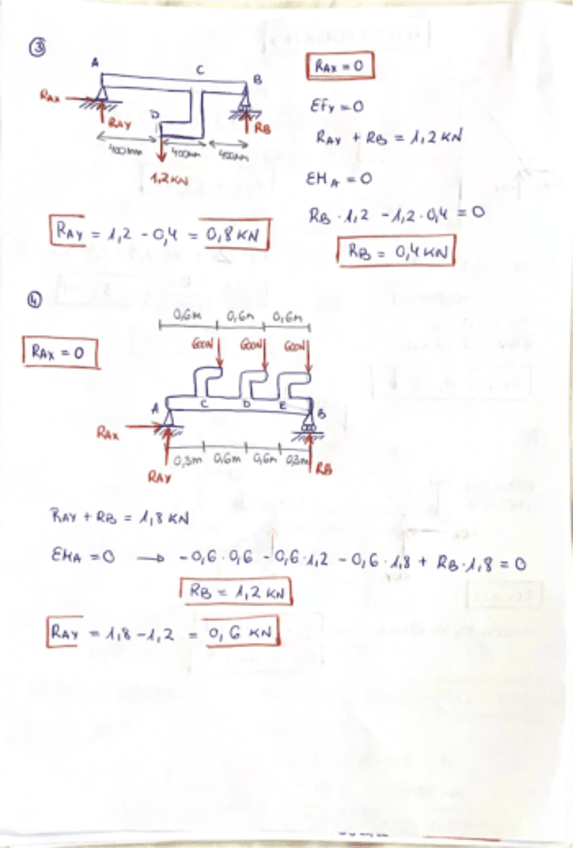 ③
A
C
B
RAX
RAY
D
RB
400mm
400mm
400mm
1,2 KN
RAX = 0
EFY = 0
RAY + RB = 1,2 KN
EMA = 0
RB · 1,2 - 1,2 · 0,4 = 0
RB = 0,4 KN
RAY = 1,2 - 0,4 = 0,8 KN
④
RAX = 0
0,6m 0,6m 0,6m
600N 600N 600N
A C D E B
RAX
0,3m 0,6m 0,6m 0,3m
RAY
RB
RAY + RB = 1,8 KN
EMA = 0 → -0,6 · 0,6 - 0,6 · 1,2 - 0,6 · 1,8 + RB · 1,8 = 0
RB = 1,2 KN
RAY = 1,8 - 1,2 = 0,6 KN